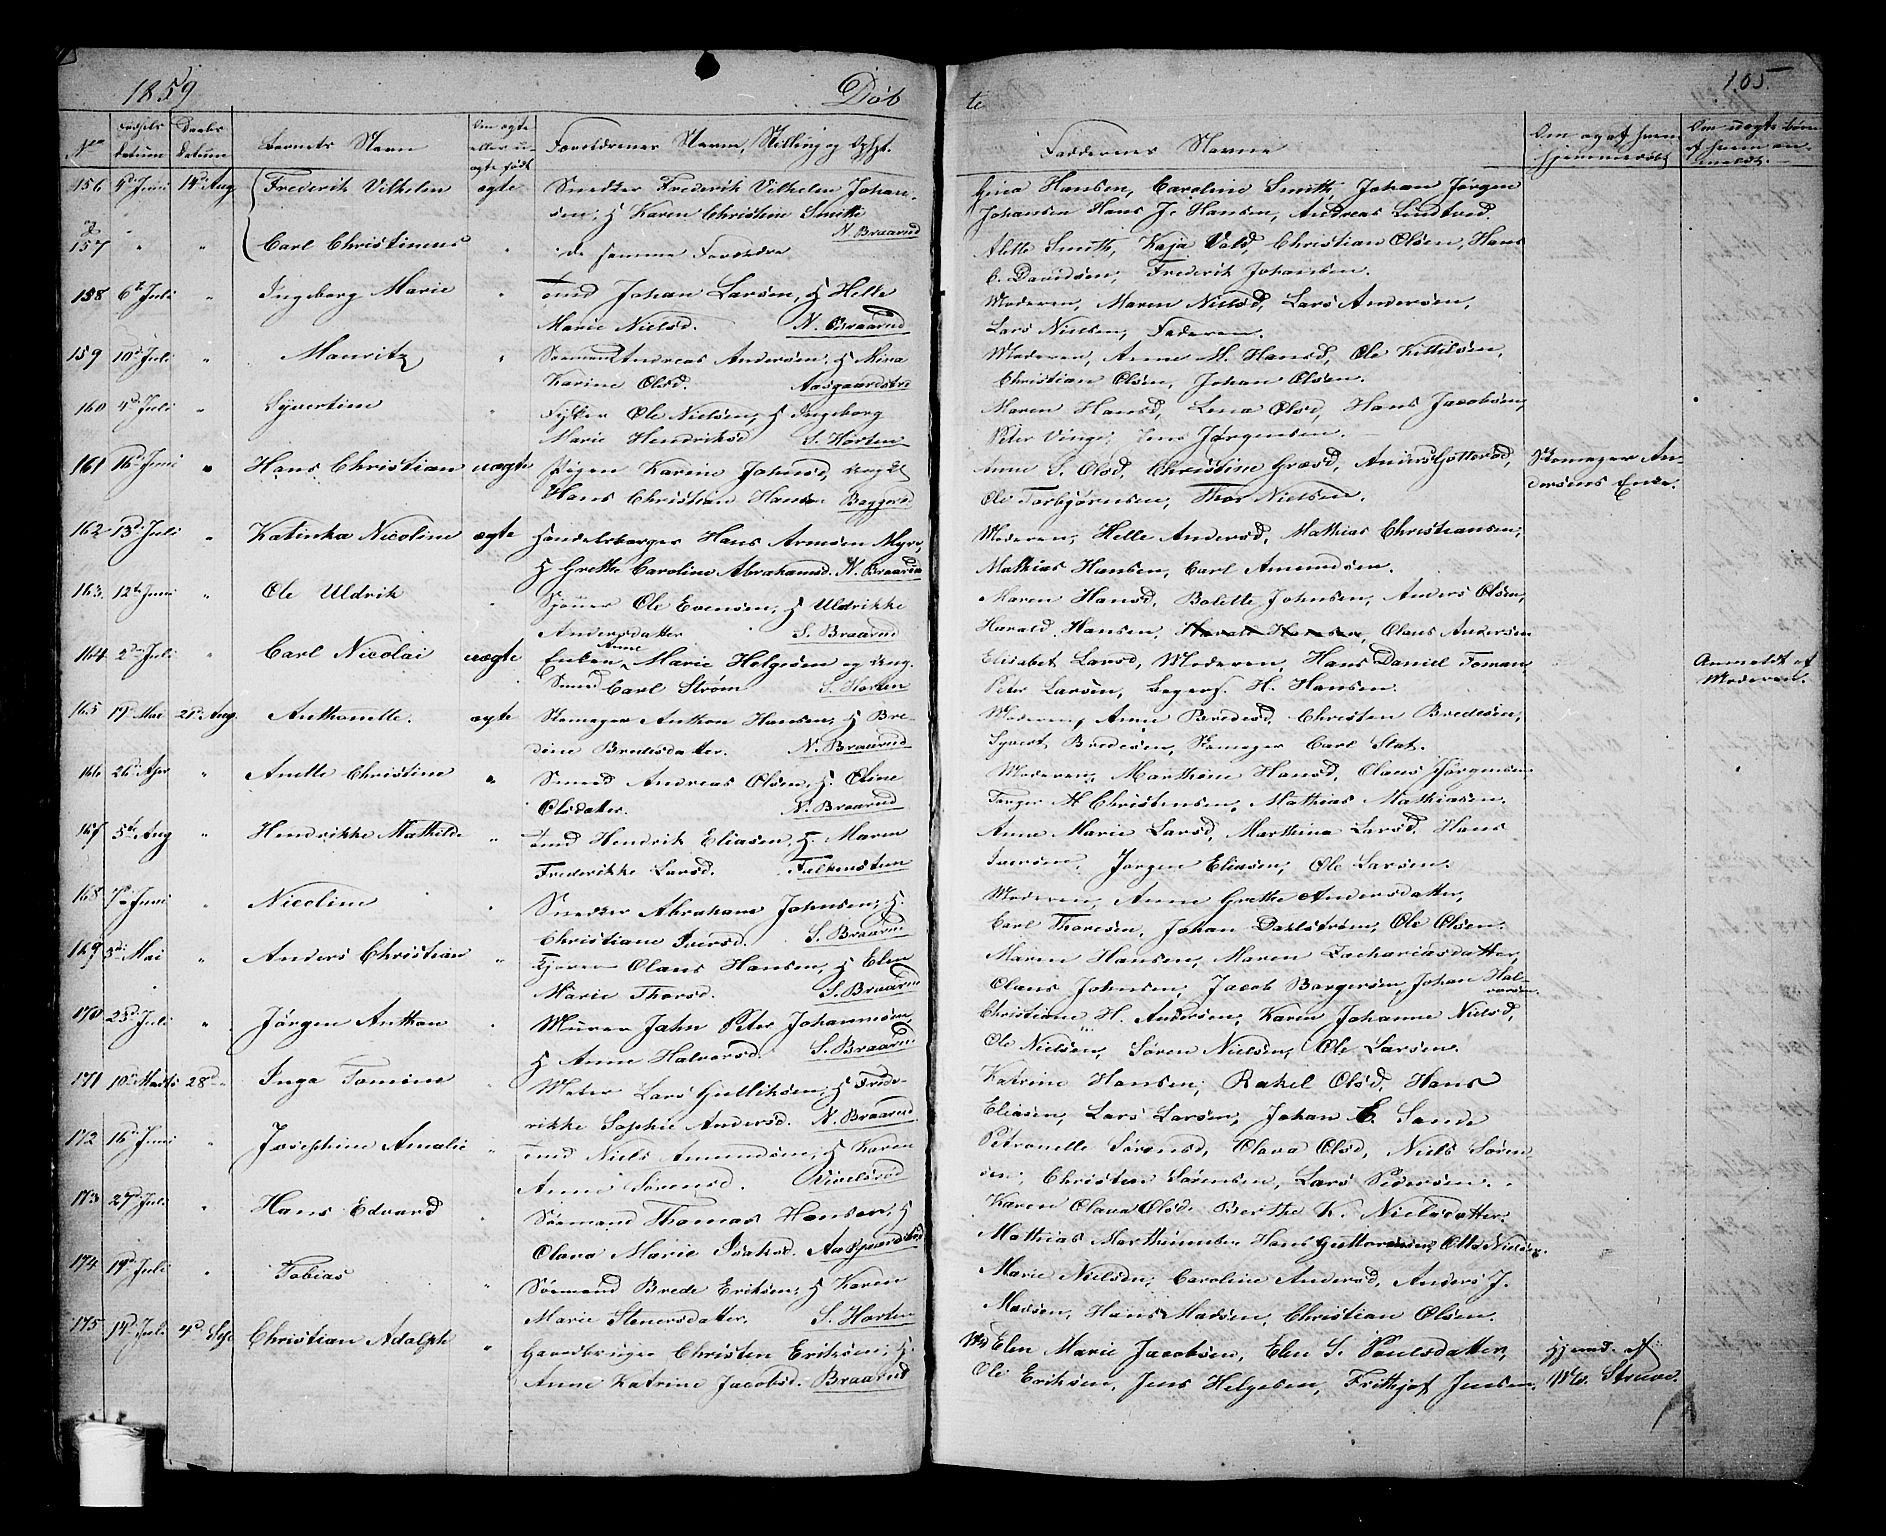 1859 Døb
No Fødsels Datum Daabs Datum Barnets Navn Om ægte eller uægte født Forældrenes Navne, Stilling og Opht.
156 5d Juni 14d Aug Frederik Vilhelm ægte Snedker Frederik Vilhelm Johan-
sen, H Karen Christine Smith
N. Braarud
157 " " Carl Christinius " de samme Forældre
158 6te Juli " Ingeborg Marie " Johan Larsen, H Helle
Marie Nielsd. N. Braarud
159 10d Juli " Mauritz " Sømand Andreas Andersen, H Mina
Karine Olsd. Aasgaardstr
160 4d Juli " Syvertine " Ole Nielsen, H Ingeborg
Marie Hendriksd S. Horten
161 16d Juni " Hans Christian uægte Pigen Karine Johnsd,
Hans Christian Hansen
162 13d Juli " Katinka Nicoline ægte Handelsborger Hans Arnesen Myre,
H Grethe Caroline Abrahamsd. N. Braarud
163. 12te Juni " Ole Uldrik " Ole Evensen, H Uldrikke
Andersdatter S. Braarud
164 2den Juli " Carl Nicolai uægte Enken Anne Marie Helgesen og ung.
Smed Carl Strøm S. Horten
165 19d Mai 21d Aug. Anthonette. ægte Skomager Anthon Hansen, H Bre-
dine Bredesdatter. N. Braarud
166 26d Apr " Anette Christine " Smed Andreas Olsen, H. Oline
Olsdatter. N. Braarud
167 5te Aug " Hendrikke Mathilde " Hendrik Eliasen, H. Maren
Frederikke Larsd. Falkensteen
168 7de Juni " Nicoline " Snedker Abraham Johnsen, H.
Christiane Iversd. S. Braarud
169 3di Mai " Anders Christian " Olaus Hansen, H Elen
Marie Thorsd. S. Braarud
170 25d Juli " Jørgen Anthon " Murer John Peter Johannesen,
H Anne Halvorsd. S. Braarud
171 10d Marts 28d " Inga " Lars Gulliksen, H Frede-
rikke Sophie Andersd. N. Braarud
172 16d Juni " Josephine Amalie " Niels Amundsen, H Karen
Anne Sørensd.
173 27d Juli " Hans Edvard " Sømand Thomas Hansen, H
Olava Marie Isaksd. Aasgaardstrd
174 19d Juli " Tobias " Sømand Brede Eriksen, H Karen
Marie Stenersdatter. S. Horten
175 14d Juli 4d Sept Christian Adolph " Gaardbruger Christen Eriksen, H.
Anne Katrine Jacobsd. Braarud
te 105.
Faddernes Navne Om og af hvem hjemmedøbt Om uægte børn af hvem anmeldt.
Gina Hansen, Caroline Smith, Johan Jørgen
Johansen Hans J. Hansen, Andreas Lindtved.
Alette Smith, Kaja Vold, Christian Olsen, Hans
C. Davidsen, Frederik Johansen.
Moderen, Maren Nielsd, Lars Andersen,
Lars Nielsen, Faderen.
Moderen, Anne M. Hansd, Ole Kittilsen,
Christian Olsen, Johan Olsen.
Maren Hansd, Lena Olsd, Hans Jacobsen,
Peter Vinge, Jens Jørgensen.
Anne S. Olsd, Christine Græsd, Skomager An-
Ole Torbjørnsen, Thor Nielsen. dersens Enke.
Moderen, Helle Andersd, Mathias Christiansen,
Mathias Hansen, Carl Amundsen.
Maren Hansd, Bolette Johnsen, Anders Olsen,
Harald Hansen, Harald Hansen, Olaus Andersen
Elisabet Larsd, Moderen, Hans Daniel Toman Anmeldt af
Peter Larsen, H. Hansen. Moderen.
Moderen, Anne Bredesd, Christen Bredesen,
Syvert Bredesen, Skomager Carl Slat.
Moderen, Marthine Hansd, Olaus Jørgensen
H Christensen, Mathias Mathiasen.
Anne Marie Larsd, Marthina Larsd, Hans
Iversen, Jørgen Eliasen, Ole Larsen.
Moderen, Anne Grethe Andersdatter,
Carl Thoresen, Johan Dahlstrøm, Ole Olsen.
Maren Hansen, Maren Zachariasdatter,
Olaus Johnsen, Jacob Borgersen, Johan Hal-
vorsen.
Christiane H. Andersen, Karen Johanne Nielsd,
Ole Nielsen, Søren Nielsen, Ole Larsen.
Katrine Hansen, Rakel Olsd, Hans
Eliasen, Lars Larsen, Johan E. Sande
Petronelle Sørensd, Olava Olsd, Niels Søren-
sen, Christian Sørensen, Lars Pedersen.
Karen Olava Olsd, Berthe K. Nielsdatter.
Mathias Marthinussen Hans Guttormsen, Otto Nielsen.
Marie Nielsen, Caroline Andersd, Anders J.
Madsen, Hans Madsen, Christian Olsen.
Md Elen Marie Jacobsen, Elen S. Poulsdatter, Hjemd. af
Ole Eriksen, Jens Helgesen, Frithjof Jensen. Md. Struve.